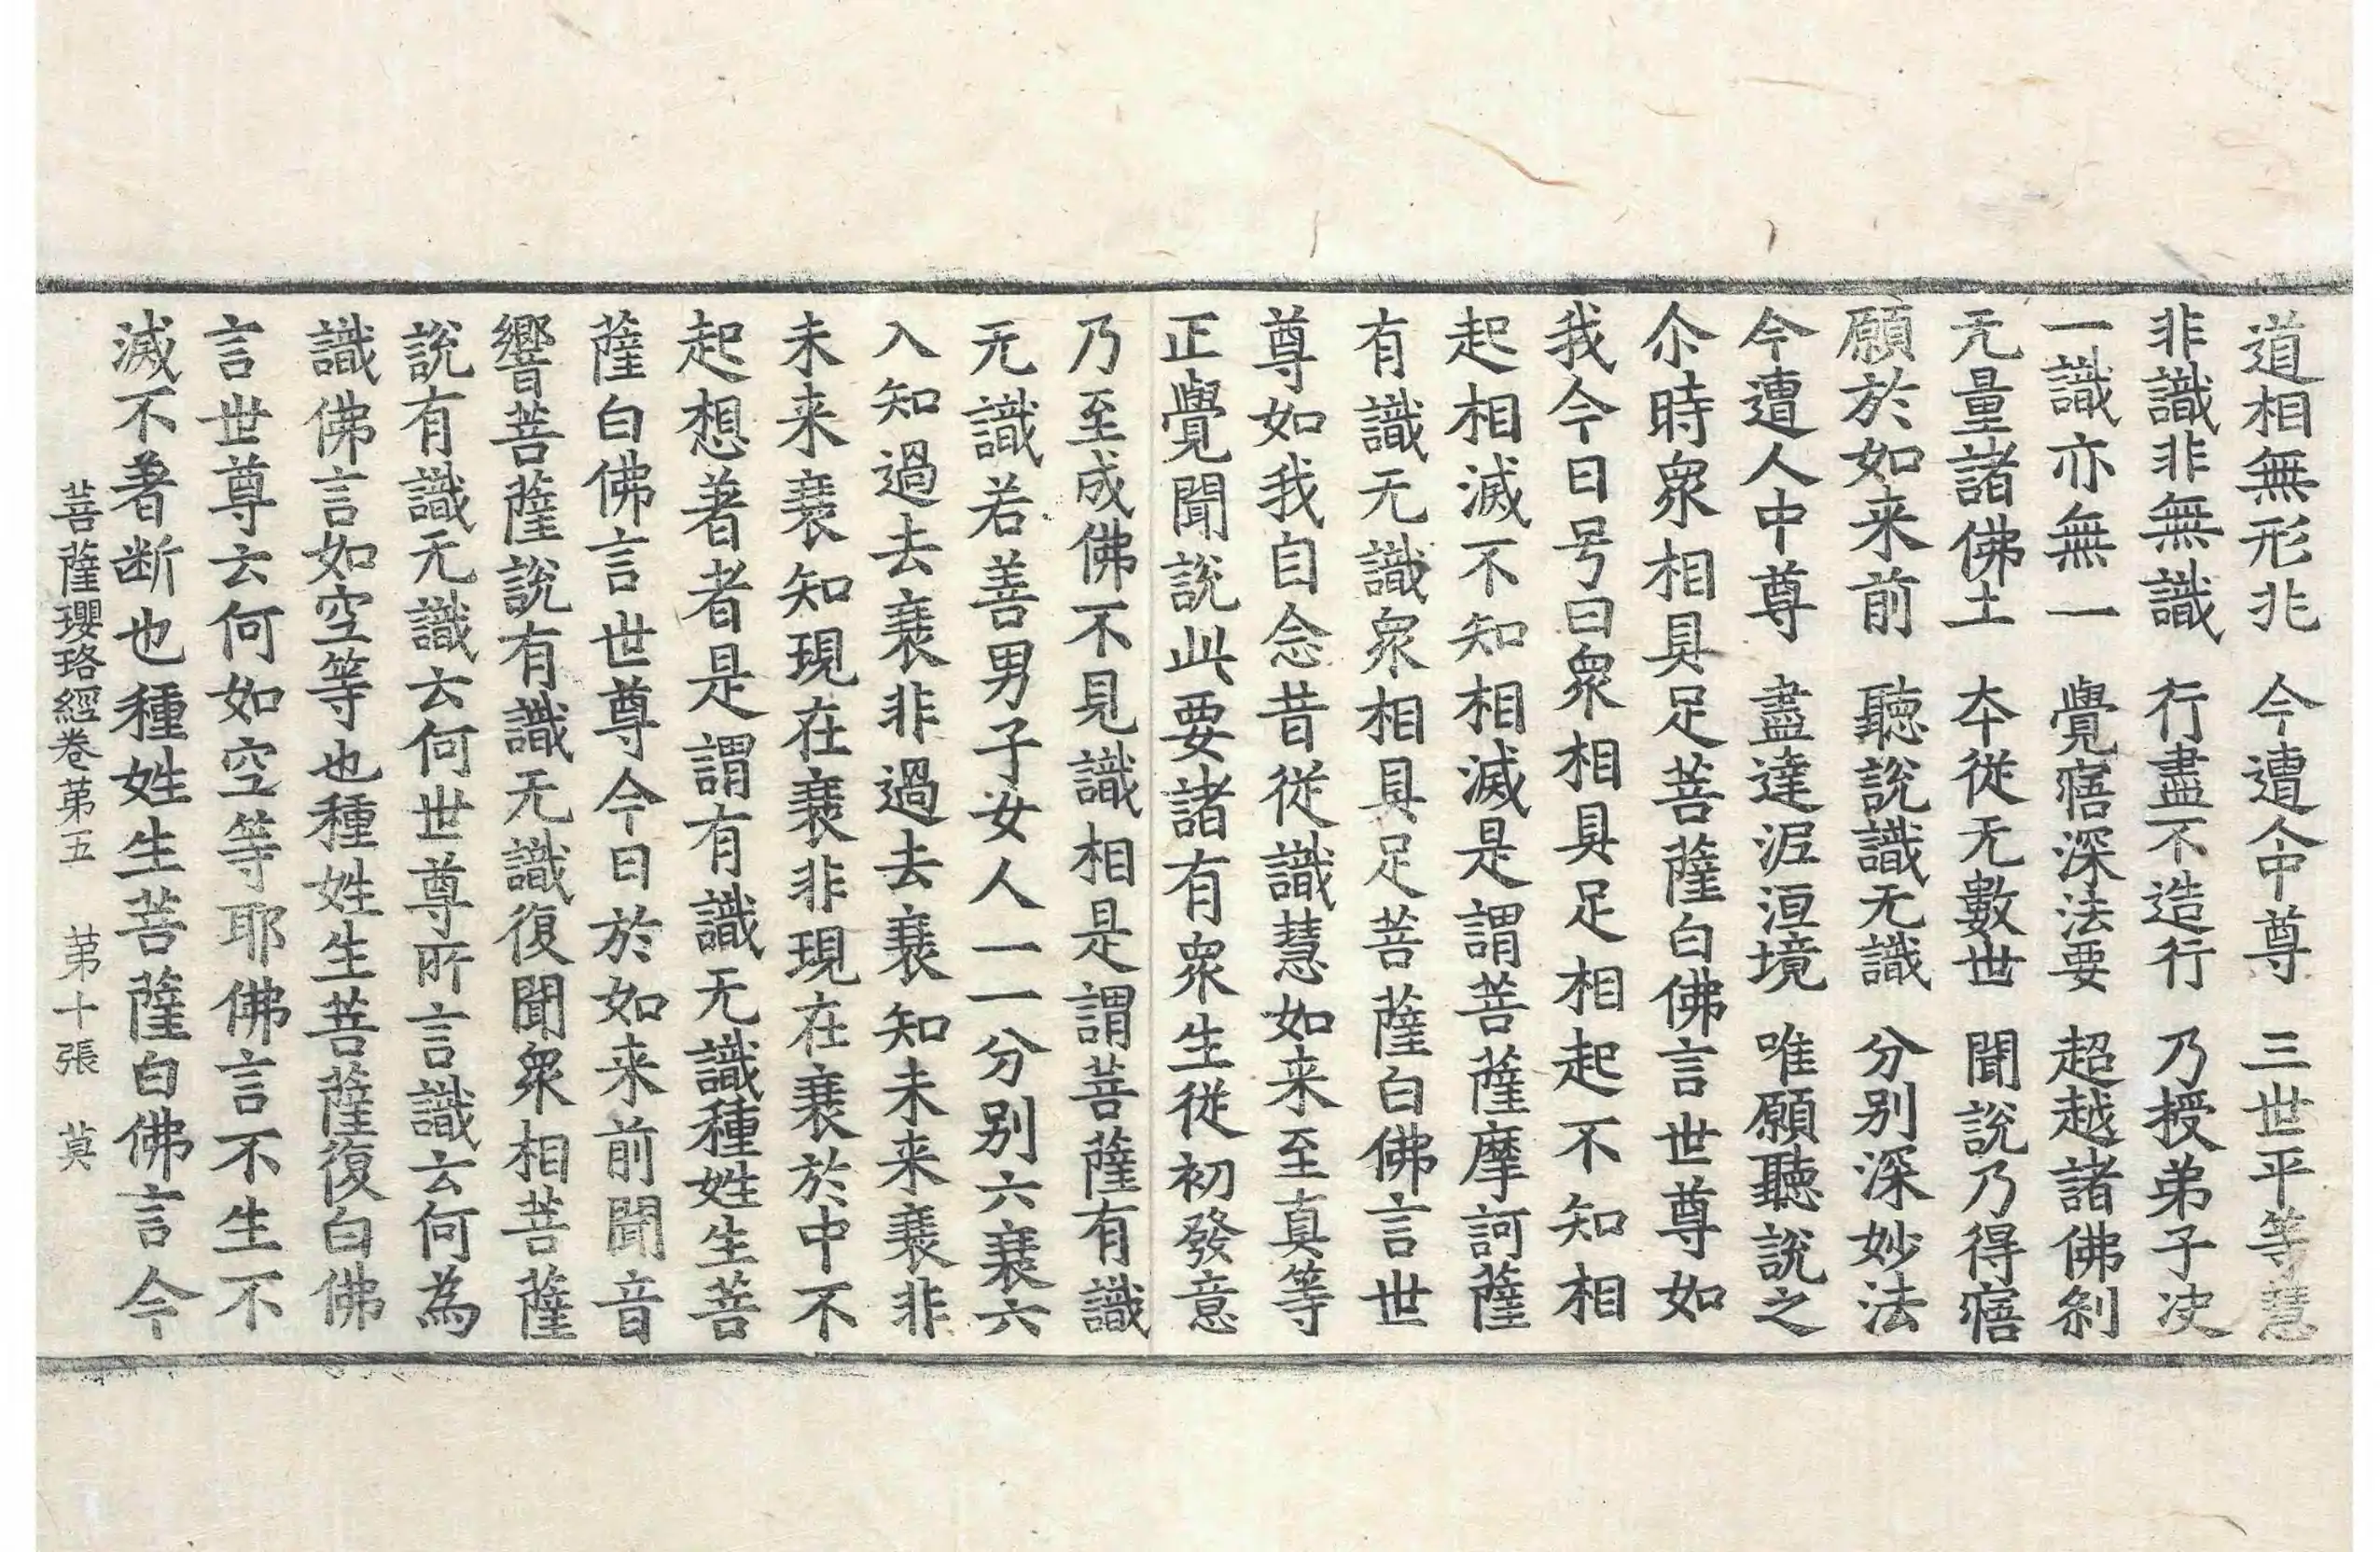 道相無形兆　今遭人中尊　三世平等慧
非識非無識　行盡不造行　乃授弟子决
一識亦無一　覺寤深法要　超越諸佛刹
无量諸佛土　本従无數世　聞説乃得寤
願於如来前　聽説識无識　分别深妙法
今遭人中尊　盡達泥洹境　唯願聽説之
尒時衆相具足菩薩白佛言世尊如
我今日号曰衆相具足相起不知相
起相滅不知相滅是謂菩薩摩訶薩
有識无識衆相具足菩薩白佛言世
尊如我自念昔従識慧如来至真等
正覺聞説此要諸有衆生従初發意
乃至成佛不見識相是謂菩薩有識
无識若善男子女人一一分别六衰六
入知過去衰非過去衰知未来衰非
未来衰知現在衰非現在衰於中不
起想著者是謂有識无識種姓生菩
薩白佛言世尊今日於如来前聞音
響菩薩説有識无識復聞衆相菩薩
説有識无識云何世尊所言識云何為
識佛言如空等也種姓生菩薩復白佛
言世尊云何如空等耶佛言不生不
滅不著断也種姓生菩薩白佛言今
菩薩瓔珞經卷第五　第十張　莫